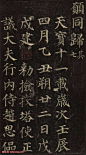 願同歸其七
天寶十一載歲次壬辰
四月乙丑朔廿二日戊
戌建勑檢校塔使正
議大夫行內侍趙思侃